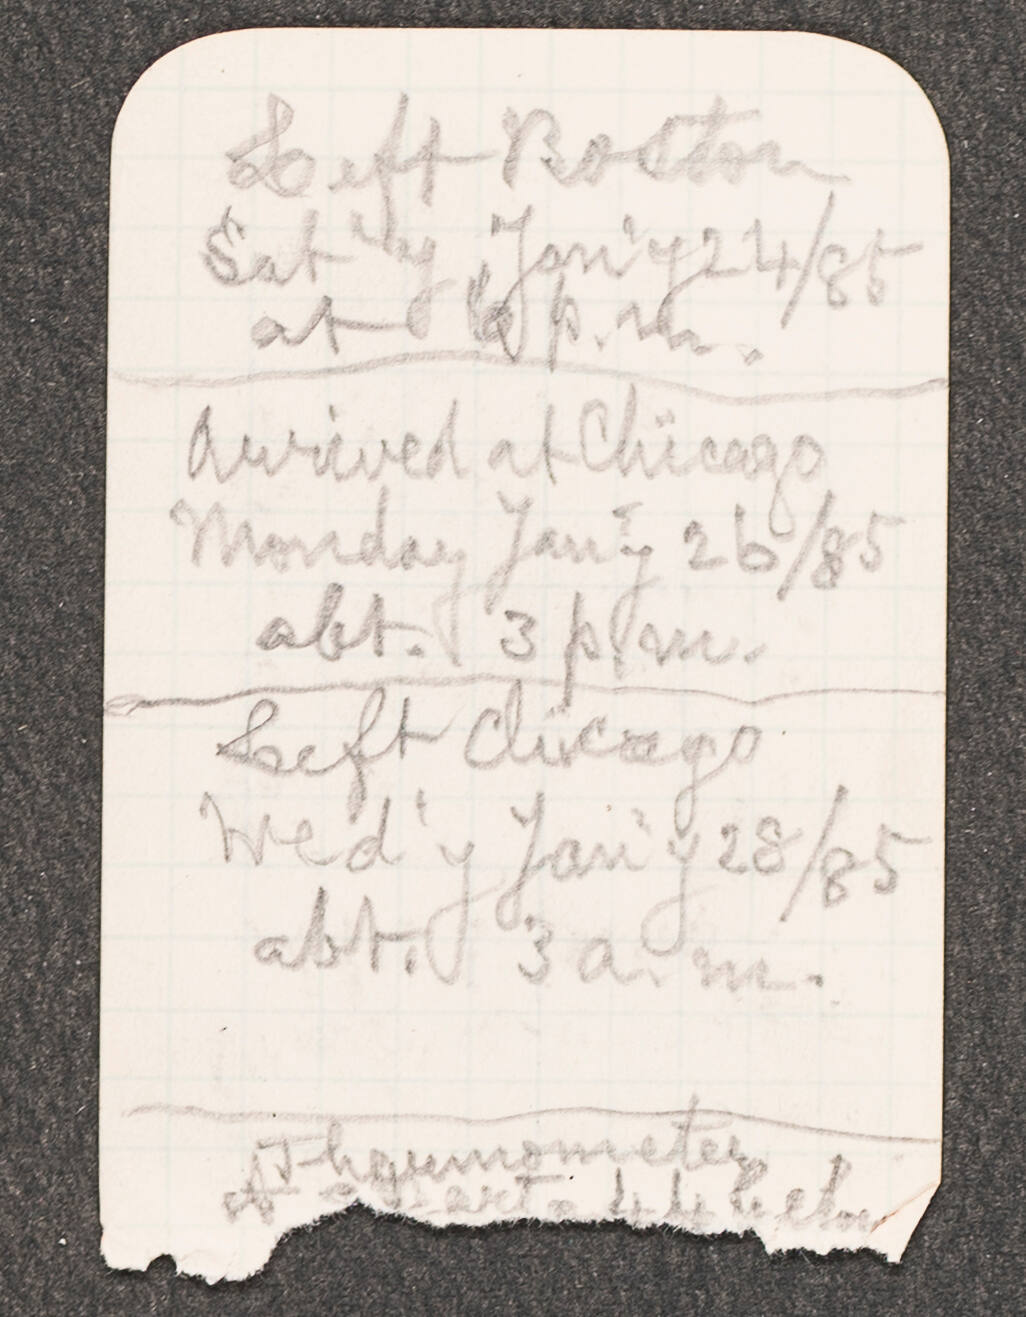 Left Boston
Sat'y, Jan'y 24/85
at 6 p.m.
Arrived at Chicago
Monday Jan'y 26/85
abt. 3 p.m.
Left Chicago
Wed'y Jan'y 28/85
abt. 3 a.m.
Thermometer